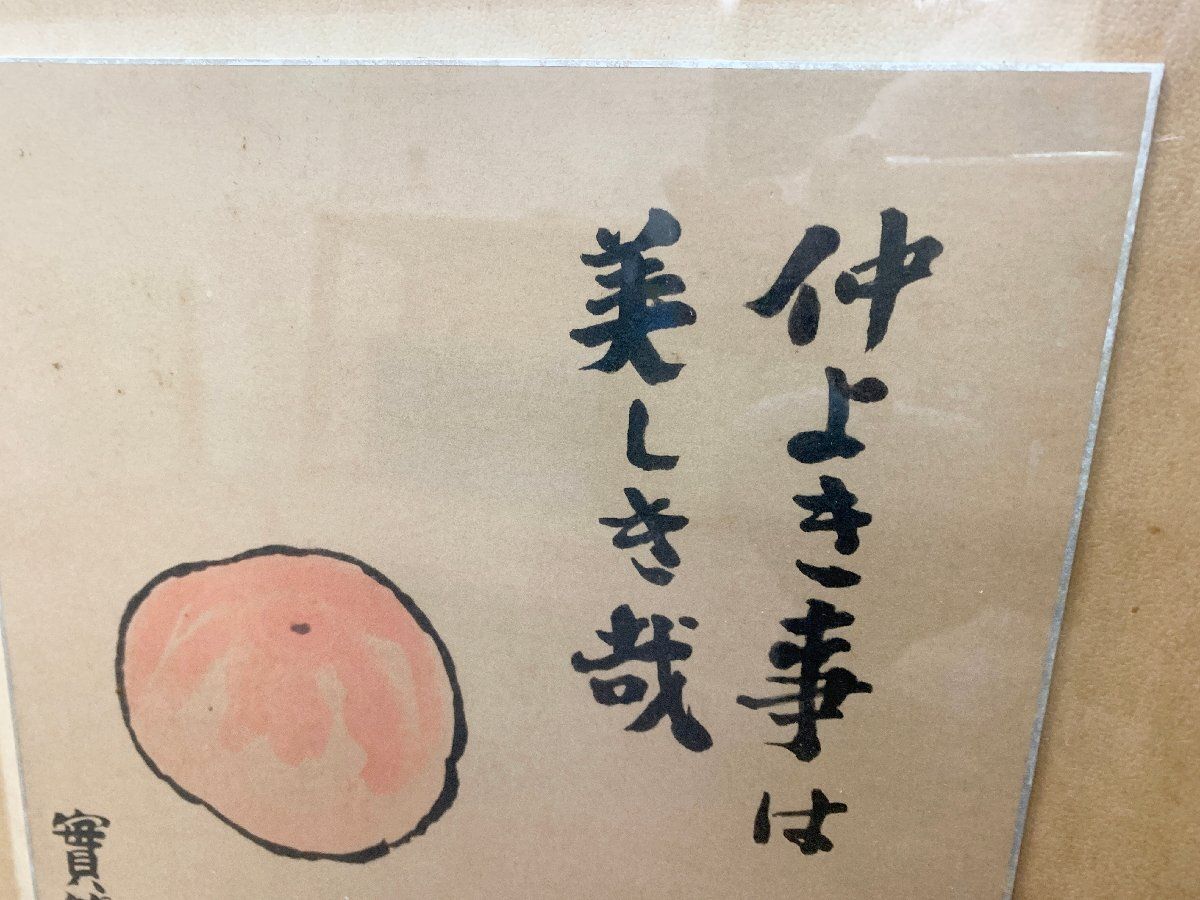 仲よき事は
美しき哉
實